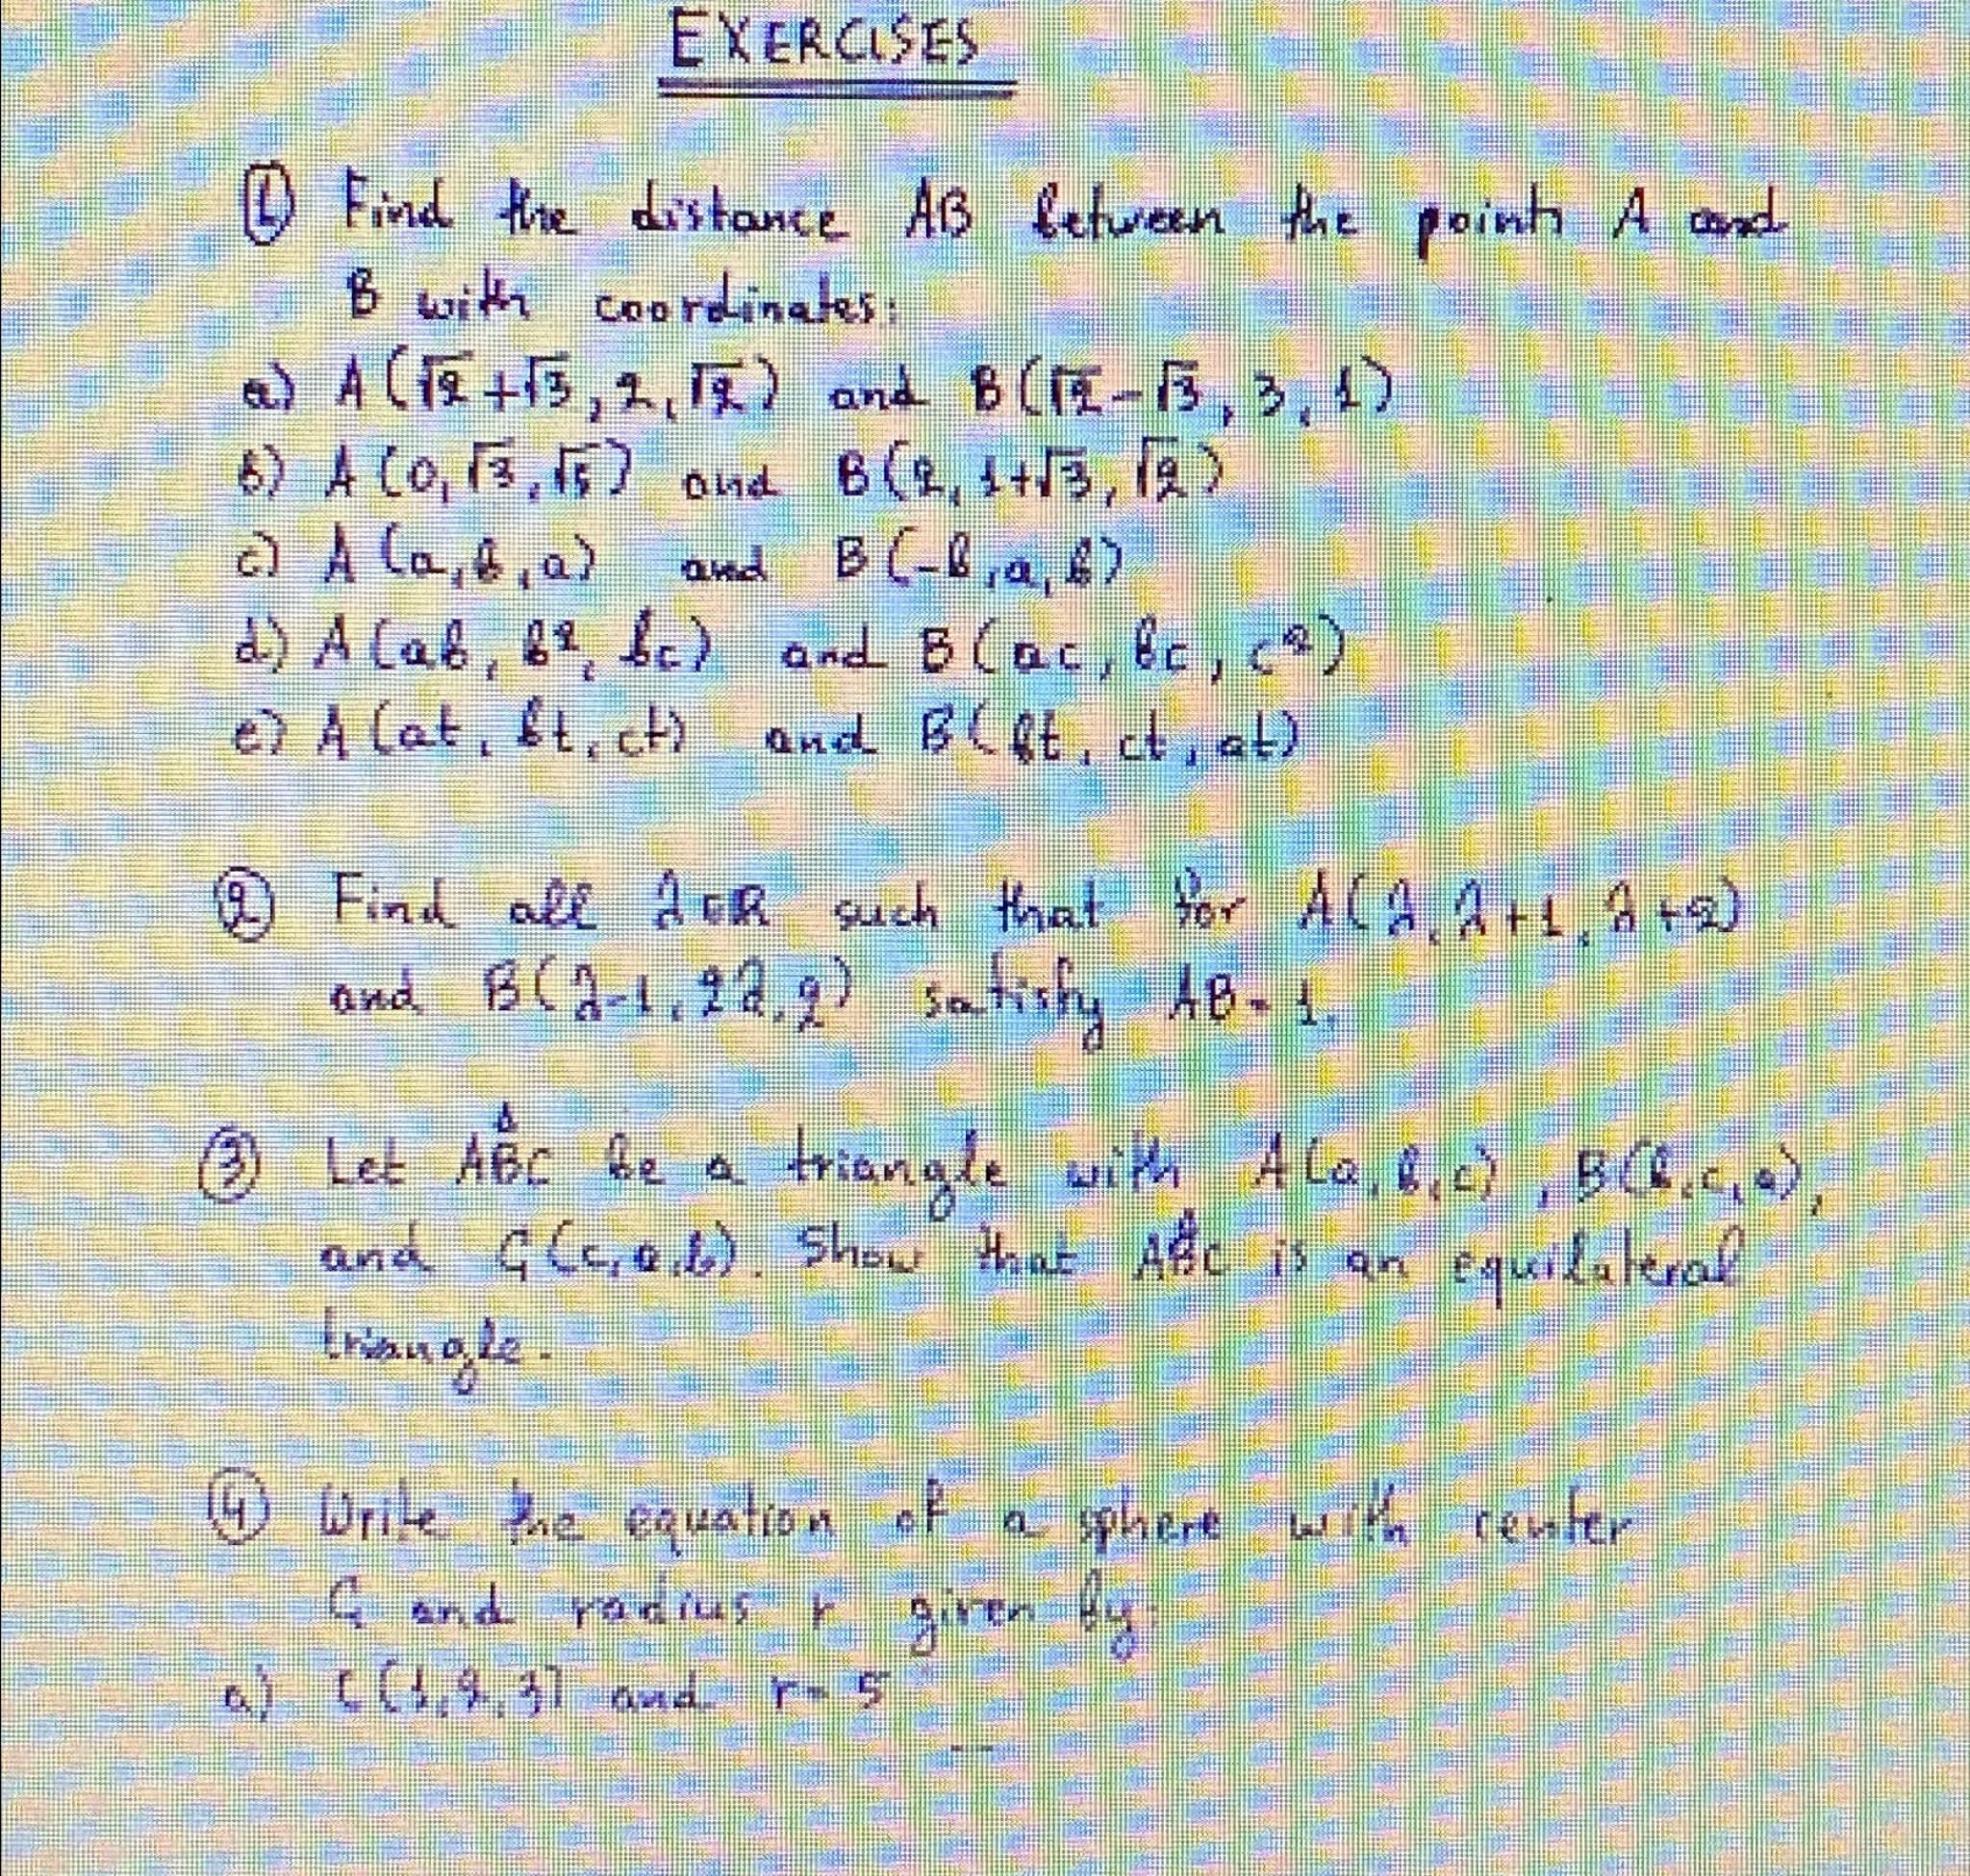 EXERCISES
① Find the distance AB between the points A and
B with coordinates:
a) A(√2+√3, 2, √2) and B(√2-√3, 3, 1)
b) A(0, √3, √5) and B(2, 1+√3, √2)
c) A(a, b, a) and B(-b, a, b)
d) A(ab, b², bc) and B(ac, bc, c²)
e) A(at, bt, ct) and B(bt, ct, at)
② Find all λ∈R such that for A(λ, λ+1, λ+2)
and B(λ-1, 2λ, 2) satisfy AB=1.
③ Let ABC be a triangle with A(a, b, c), B(b, c, a),
and C(c, a, b). Show that ABC is an equilateral
triangle.
④ Write the equation of a sphere with center
C and radius r given by:
a) C(1, 2, 3) and r=5